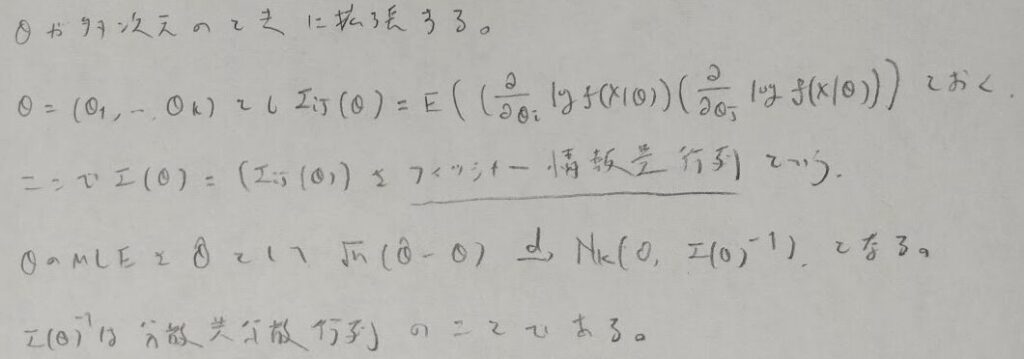 θが多次元のときに拡張する。
θ = (θ1, … θk) とし Iij(θ) = E( (∂/∂θi log f(X|θ)) (∂/∂θj log f(X|θ)) ) とおく.
ここで I(θ) = (Iij(θ)) を フィッシャー情報量行列 という.
θのMLEを θ̂ として √n (θ̂ - θ) →d Nk(0, I(θ)⁻¹). となる。
I(θ)⁻¹は 分散共分散行列 のことである。